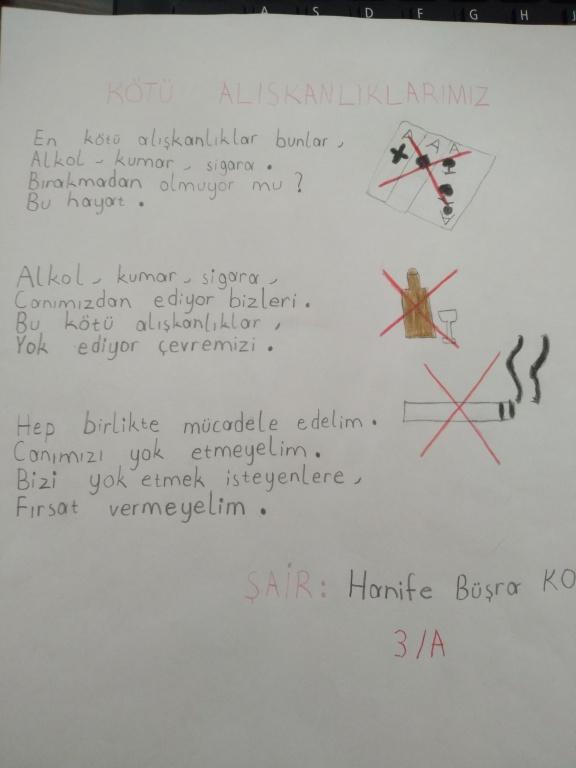 A S D F G H J
KÖTÜ ALIŞKANLIKLARIMIZ
En kötü alışkanlıklar bunlar,
Alkol, kumar, sigara.
Bırakmadan olmuyor mu?
Bu hayat.
A A A
A
Alkol, kumar, sigara,
Canımızdan ediyor bizleri.
Bu kötü alışkanlıklar,
Yok ediyor çevremizi.
Hep birlikte mücadele edelim.
Canımızı yok etmeyelim.
Bizi yok etmek isteyenlere,
Fırsat vermeyelim.
ŞAİR: Hanife Büşra KO
3/A